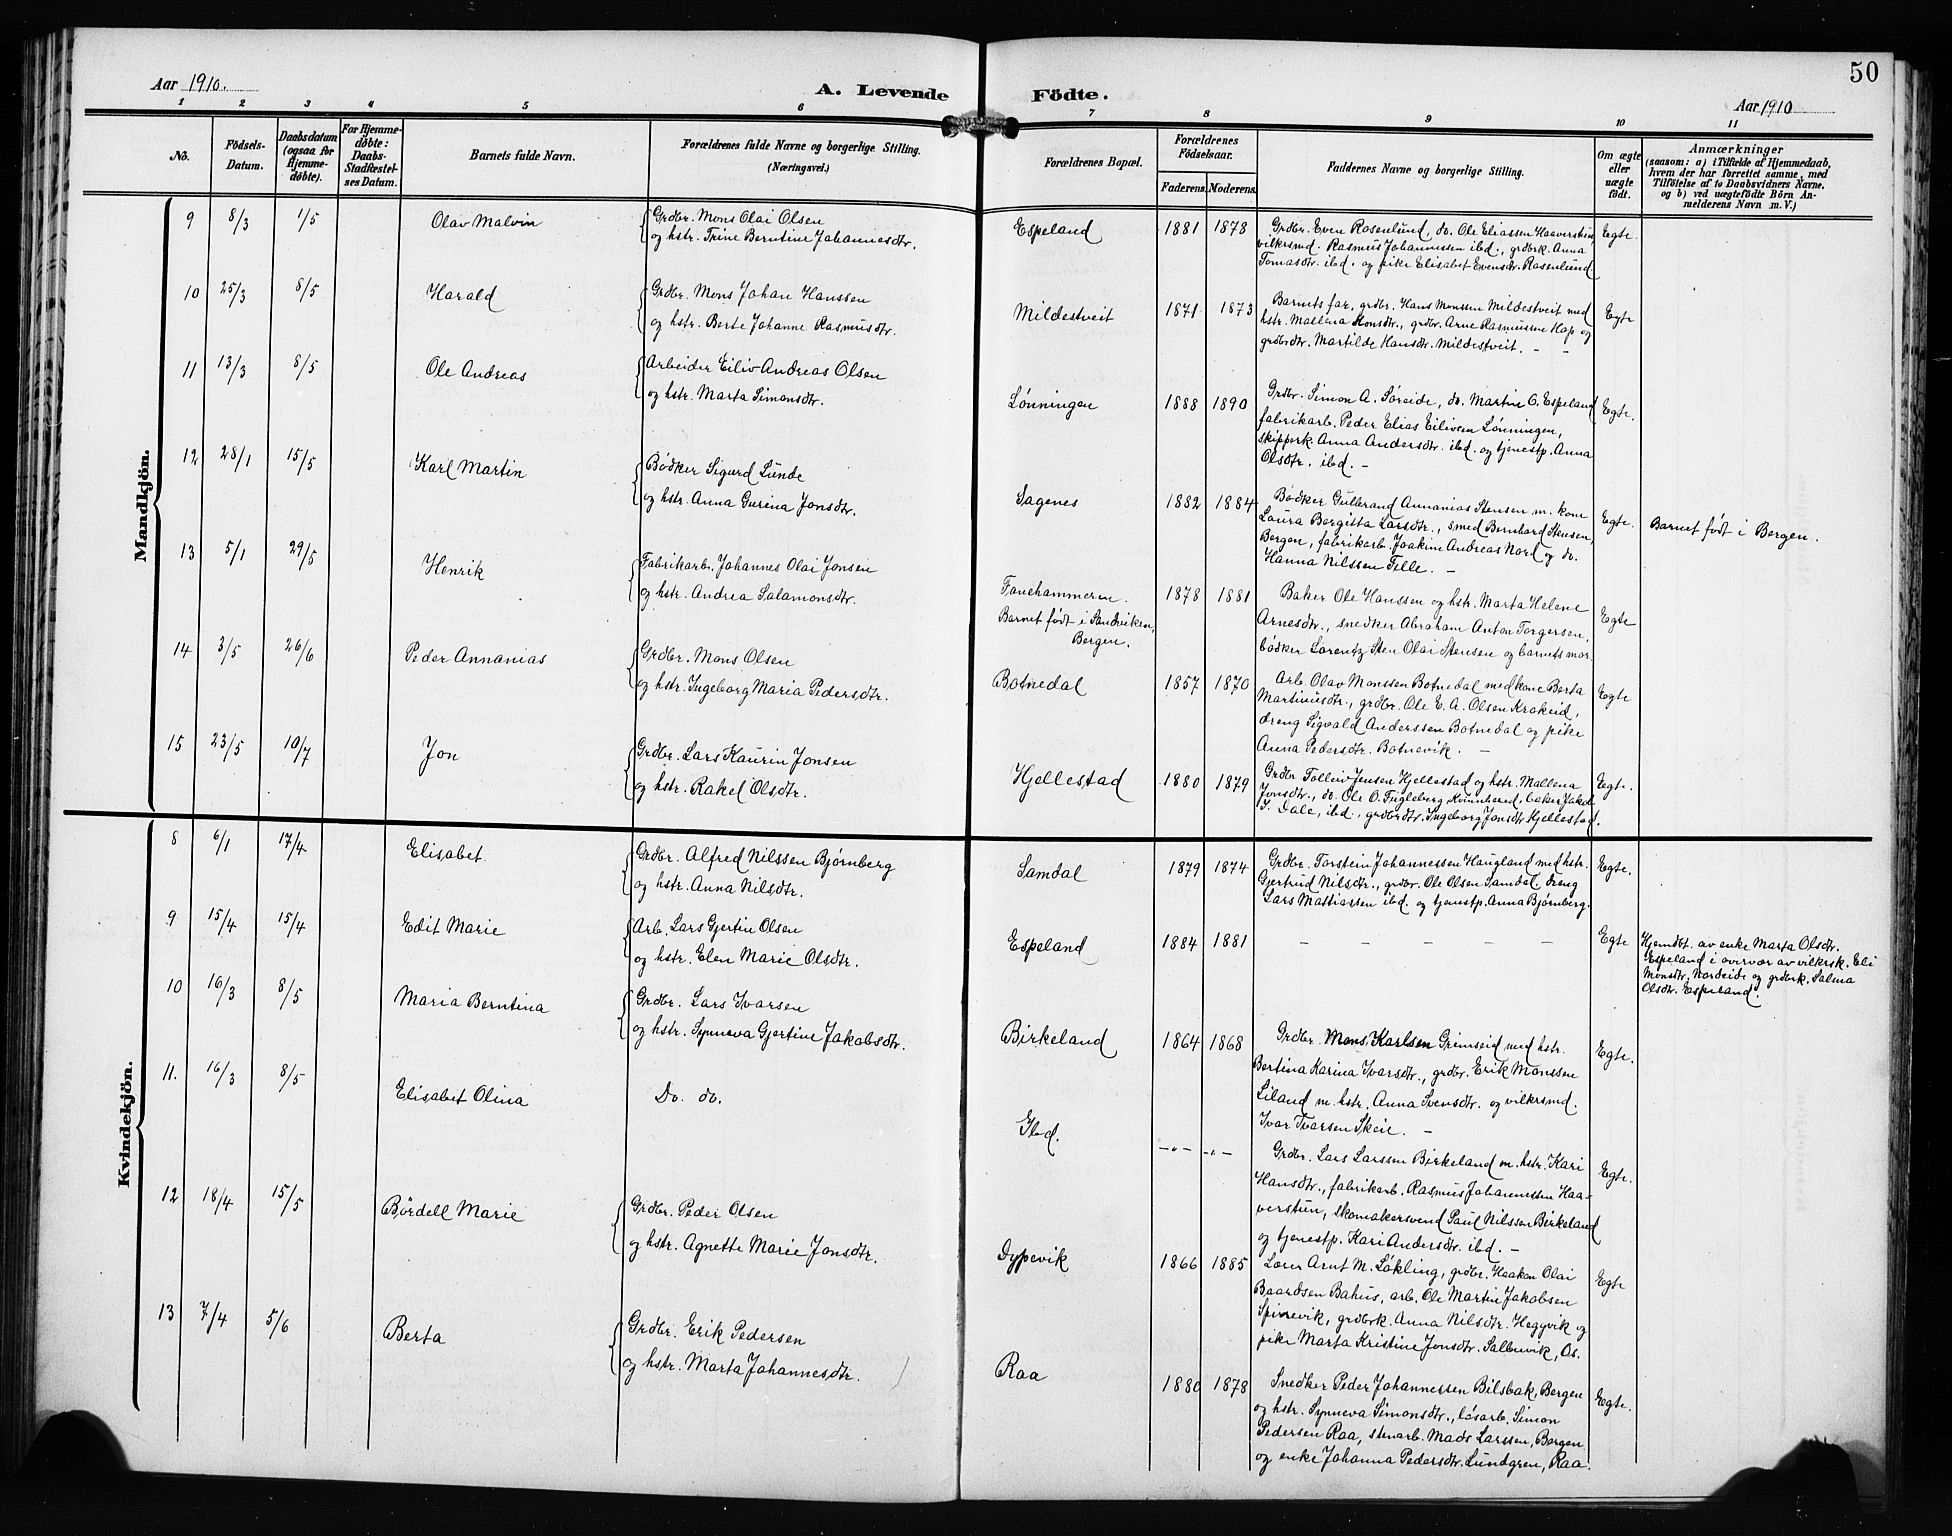 Aar 1910.
A. Levende Födte.
Aar 1910
50
1 2 3 4 5 6 7 8 9 10 11
No.
Födsels-
Datum.
Daabsdatum
(ogsaa for
Hjemme-
döbte).
For Hjemme-
döbte:
Daabs-
Stadfæstel-
ses Datum.
Barnets fulde Navn.
Forældrenes fulde Navne og borgerlige Stilling.
(Næringsvei.)
Forældrenes Bopæl.
Forældrenes
Födselsaar.
Faderens. Moderens.
Faddernes Navne og borgerlige Stilling.
Om ægte
eller
uægte
födt.
Anmærkninger
(saasom: a) i Tilfælde af Hjemmedaab,
hvem der har forrettet samme, med
Tilföielse af to Daabsvidners Navne,
og b) ved uægtefödte Börn An-
melderens Navn m. V.)
Mandkjön.
9 8/3 1/5 Olav Malvin
Grdbr. Mons Olai Olsen
og hstr. Trine Berntine Johannesdtr.
Espeland 1881 1878
Grdbr. Even Rosenlund, do. Ole Eliassen Haaverstun,
vilkrsmd. Rasmus Johannessen ibd., grdbrk. Anna
Tomasdtr. ibd. og pike Elisabet Evensdtr. Rosenlund
Egte.
10 25/3 8/5 Harald
Grdbr. Mons Johan Hanssen
og hstr. Berte Johanne Rasmusdtr.
Mildestveit 1871 1873
Barnets far, grdbr. Hans Monssen Mildestveit med
hstr. Mallena Monsdtr., grdbr. Arne Rasmussen Hop og
grdbrdtr. Martilde Hansdtr. Mildestveit. – –
Egte
11 13/3 8/5 Ole Andreas
Arbeider Eiliv Andreas Olsen
og hstr. Marta Simonsdtr.
Lønningen 1888 1890
Grdbr. Simon A. Søreide, do. Martin O. Espeland
fabrikarb. Peder Elias Eilivsen Lønningen,
skipperk. Anna Andersdtr. ibd. og tjenestp. Anna
Olsdtr. ibd. –
Egte.
12 28/1 15/5 Karl Martin
Bødker Sigurd Lunde
og hstr. Anna Gurina Jonsdtr.
Sagenes 1882 1884
Bødker Gulbrand Annanias Stensen m. kone
Laura Bergitta Larsdtr., smed Bernhard Stensen,
Bergen, fabrikarb. Joakim Andreas Nord og do.
Hanna Nilssen Telle. –
Egte.
Barnet født i Bergen.
13 5/1 29/5 Henrik
Fabrikarb. Johannes Olai Jonsen
og hstr. Andrea Salamonsdtr.
Fanehammeren.
Barnet født i Sandviken,
Bergen.
1878 1881
Baker Ole Hanssen og hstr. Marta Helene
Arnesdtr., snedker Abraham Anton Torgersen,
bødker Lorentz Sten Olai Stensen og barnets mor.
Egte
14 3/5 26/6 Peder Annanias
Grdbr. Mons Olsen
og hstr. Ingeborg Maria Pedersdtr.
Botnedal 1857 1870
Arb. Olav Monssen Botnedal med kone Berta
Martinusdtr., grdbr. Ole E. A. Olsen Krokeid,
dreng Sigvald Anderssen Botnedal og pike
Anna Pedersdtr. Botnevik. –
Egte
15 23/5 10/7 Jon
Grdbr. Lars Kaurin Jonsen
og hstr. Rakel Olsdtr.
Hjellestad 1880 1879
Grdbr. Tolleiv Jensen Hjellestad og hstr. Mallena
Jonsdtr., do. Ole O. Fugleberg, Kvinnherred, baker Jakob
J. Dale, ibd., grdbrdtr. Ingeborg Jonsdtr. Hjellestad.
Egte.
Kvindekjön.
8 6/1 17/4 Elisabet.
Grdbr. Alfred Nilssen Bjørnberg
og hstr. Anna Nilsdtr.
Samdal 1879 1874
Grdbr. Torstein Johannessen Haugland med hstr.
Gjertrud Nilsdtr., grdbr. Ole Olsen Samdal, dreng
Lars Mattiassen ibd. og tjenestp. Anna Bjørnberg.
Egte.
9 15/4 15/4 Edit Marie
Arb. Lars Gjertin Olsen
og hstr. Elen Marie Olsdtr.
Espeland 1884 1881
– – – – –
Egte
Hjemdøt. av enke Marta Olsdtr.
Espeland i overvær av vilkrsk. Eli
Monsdtr. Nordeide og grdbrk. Salma
Olsdtr. Espeland.
10 16/3 8/5 Maria Berntina
Grdbr. Lars Ivarsen
og hstr. Synneva Gjertine Jakobsdtr.
Birkeland 1864 1868
Grdbr. Mons Karlsen Grimseid med hstr.
Bertina Karina Ivarsdtr., grdbr. Erik Monssen
Liland m. hstr. Anna Svensdtr. og vilkrsmd.
Ivar Ivarsen Skeie. –
Egte.
11. 16/3 8/5 Elisabet Olina
Do. do.
Ibd. –„– –„–
Grdbr. Lars Larssen Birkeland m. hstr. Kari
Hansdtr., fabrikarb. Rasmus Johannessen Haa-
verstun, skomakersvend Paul Nilssen Birkeland
og tjenestp. Kari Andersdtr. ibd. –
Egte.
12 18/4 15/5 Børdell Marie
Grdbr. Peder Olsen
og hstr. Agnette Marie Jonsdtr.
Dypevik 1866 1885
Lærer Arnt M. Løkling, grdbr. Haakon Olai
Baardsen Bahus, arb. Ole Martin Jakobsen
Spirrevik, grdbrk. Anna Nilsdtr. Heggvik og
pike Marta Kristine Jonsdtr. Salbuvik, Os.
Egte
13 7/4 5/6 Berta
Grdbr. Erik Pedersen
og hstr. Marta Johannesdtr.
Raa 1880 1878
Snedker Peder Johannessen Bilsbak, Bergen
og hstr. Synneva Simonsdtr., løsarb. Simon
Pedersen Raa, stenarb. Mads Larssen, Bergen
og enke Johanna Pedersdtr. Lundgren, Raa.
Egte.